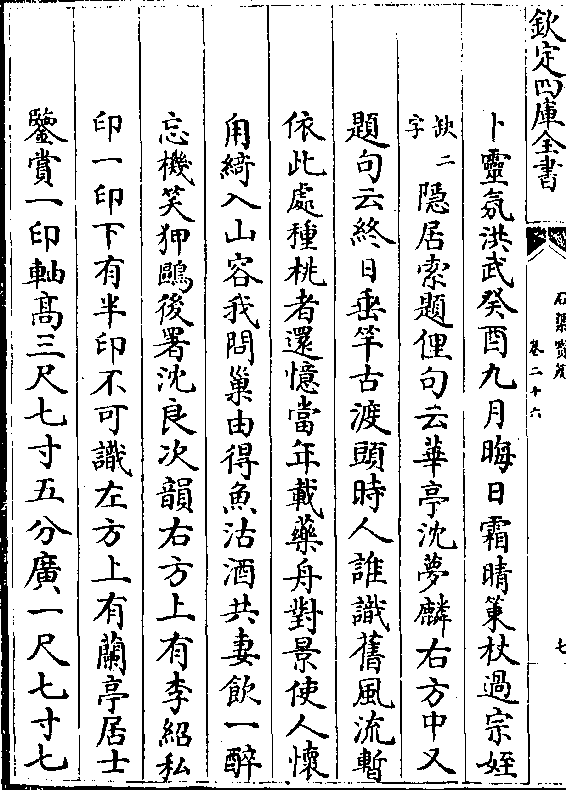 欽定四庫全書
石渠寳笈
卷二十六
七
卜靈氛洪武癸酉九月晦日霜晴策杖過宗姪
缺二字隠居索題俚句云華亭沈夢麟右方中又
題句云終日垂竿古渡頭時人誰識舊風流暫
依此處種桃者還憶當年載藥舟對景使人懷
甪綺入山容我問巢由得魚沽酒共妻飲一醉
忘機笑狎鷗後署沈良次韻右方上有李紹私
印一印下有半印不可識左方上有蘭亭居士
鑒賞一印軸髙三尺七寸五分廣一尺七寸七